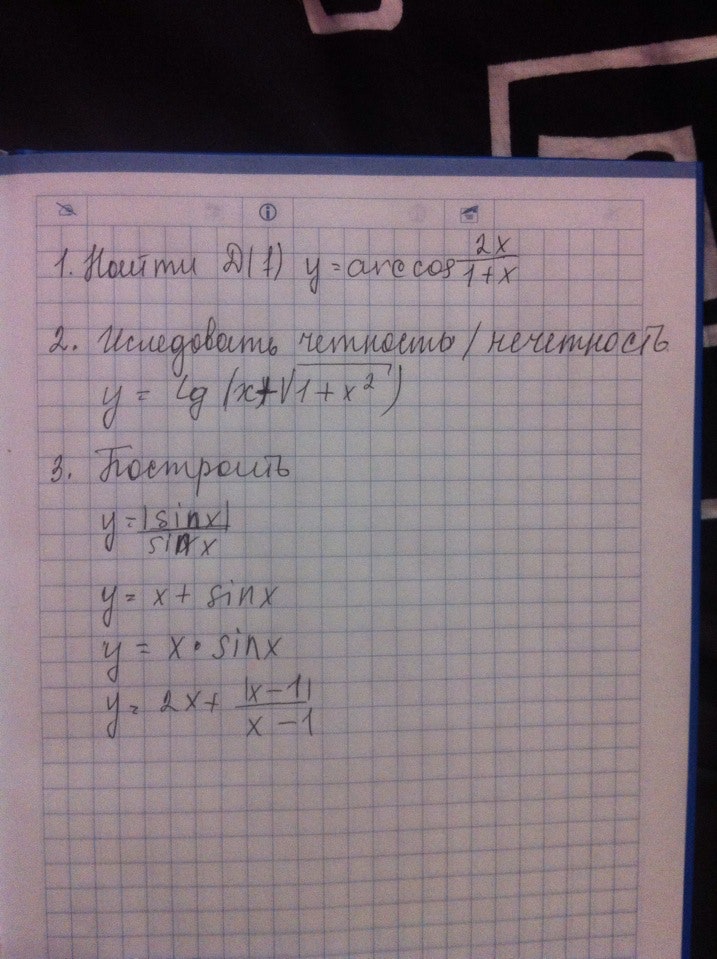 1. Найти D(f) y = arccos 2x/(1+x)
2. Иследовать четность/нечетность
y = lg(x+√(1+x²))
3. Построить
y = |sinx|/sinx
y = x + sinx
y = x · sinx
y = 2x + |x-1|/(x-1)